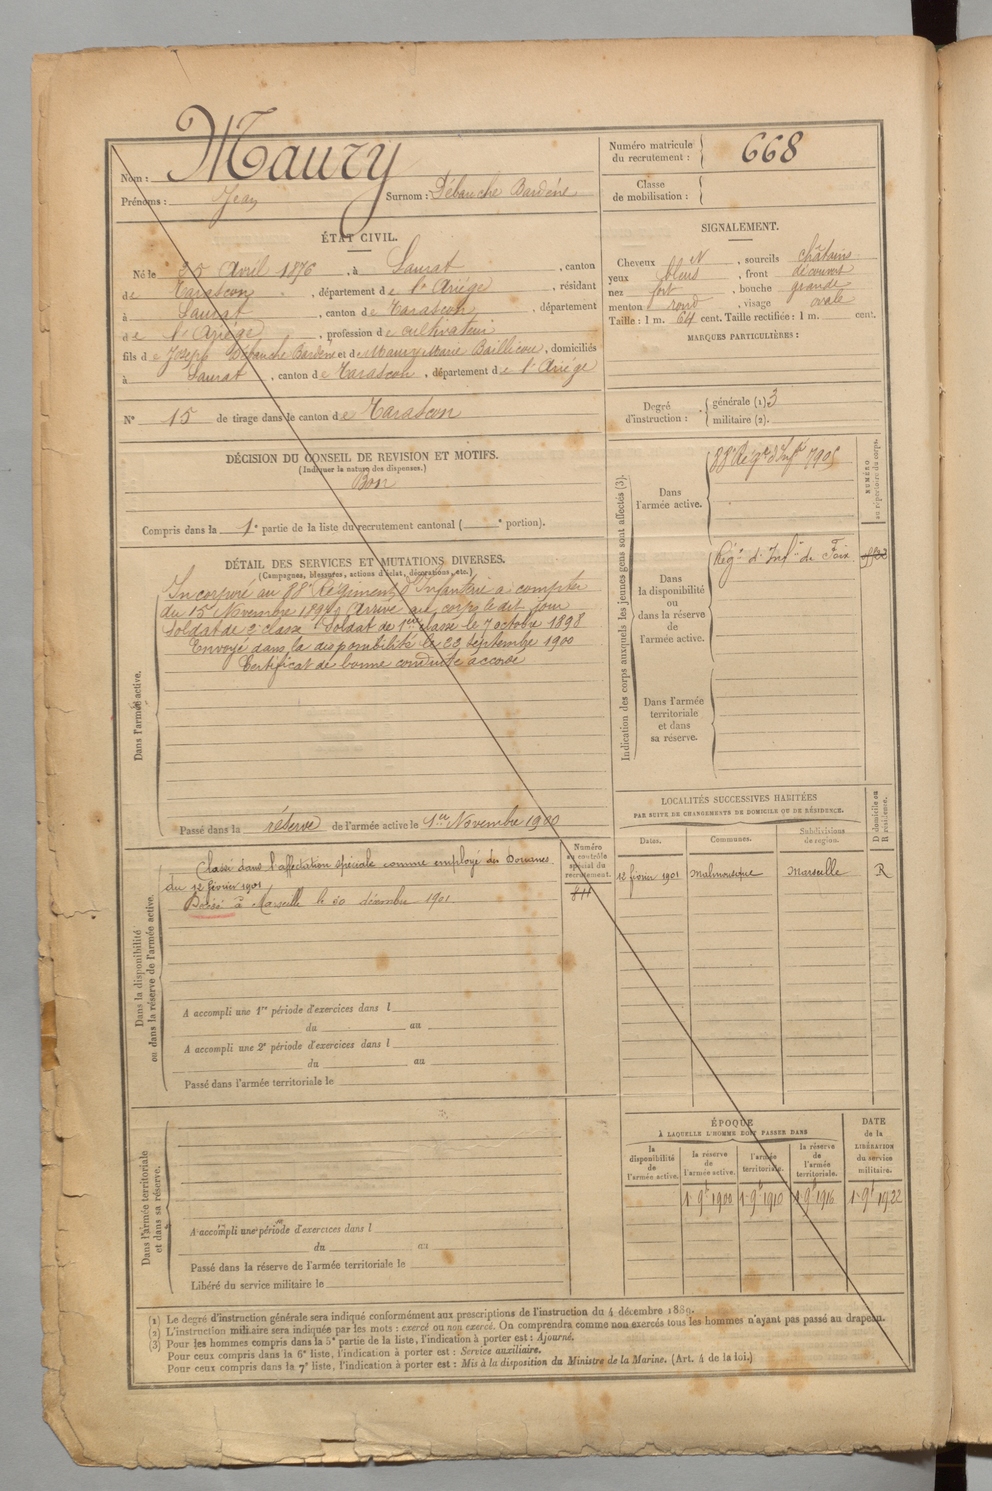 Nom : Maury
Prénoms : Jean Surnom : Débauche Bardéne
Numéro matricule du recrutement : 668
Classe de mobilisation :
ÉTAT CIVIL.
Né le 25 Avril 1876, à Saurat, canton
de Tarascon, département de l'Ariége, résidant
à Saurat, canton de Tarascon, département
de l'Ariége, profession de cultivateur
fils de Joseph Débauche Bardéne et de Maury Marie Baillicou, domiciliés
à Saurat, canton de Tarascon, département de l'Ariége
N° 15 de tirage dans le canton de Tarascon
SIGNALEMENT.
Cheveux N, sourcils châtains
yeux bleus, front découvert
nez fort, bouche grande
menton rond, visage ovale
Taille : 1 m. 64 cent. Taille rectifiée : 1 m. cent.
MARQUES PARTICULIÈRES :
Degré d'instruction : générale (1) 3
militaire (2).
DÉCISION DU CONSEIL DE REVISION ET MOTIFS.
(Indiquer la nature des dispenses.)
Bon
Compris dans la 1e partie de la liste du recrutement cantonal ( e portion).
DÉTAIL DES SERVICES ET MUTATIONS DIVERSES.
(Campagnes, blessures, actions d'éclat, décorations, etc.)
Dans l'armée active.
Incorporé au 88e Régiment d'Infantrie à compter
du 15 Novembre 1897 Arrivé au corps le dit jour
Soldat de 2e classe Soldat de 1ere classe le 7 octobre 1898
Envoyé dans la disponibilité le 22 septembre 1900
Certificat de bonne conduite accordé
Passé dans la réserve de l'armée active le 1er Novembre 1900
Indication des corps auxquels les jeunes gens sont affectés (3).
NUMÉRO au répertoire du corps.
Dans l'armée active.
88e Régt d'Inft
Dans la disponibilité ou dans la réserve de l'armée active.
Régt d'Infie de Foix
Dans l'armée territoriale et dans sa réserve.
LOCALITÉS SUCCESSIVES HABITÉES
PAR SUITE DE CHANGEMENTS DE DOMICILE OU DE RÉSIDENCE.
Dates. Communes. Subdivisions de région. D domicile ou R résidence.
12 février 1901 Malmousque Marseille R
Dans la disponibilité ou dans la réserve de l'armée active.
Numéro au contrôle spécial du recrutement.
811
Classé dans l'affectation spéciale comme employé des Douanes.
du 12 février 1901
Passé à Marseille le 30 décembre 1901
A accompli une 1re période d'exercices dans l
du au
A accompli une 2e période d'exercices dans l
du au
Passé dans l'armée territoriale le
Dans l'armée territoriale et dans sa réserve.
A accompli une période d'exercices dans l
du au
Passé dans la réserve de l'armée territoriale le
Libéré du service militaire le
ÉPOQUE
À LAQUELLE L'HOMME DOIT PASSER DANS
la disponibilité de l'armée active. la réserve de l'armée active. l'armée territoriale. la réserve de l'armée territoriale.
DATE de la LIBÉRATION du service militaire.
1 9b 1900 1 9b 1910 1 9b 1916 1 9b 1922
(1) Le degré d'instruction générale sera indiqué conformément aux prescriptions de l'instruction du 4 décembre 1889.
(2) L'instruction militaire sera indiquée par les mots : exercé ou non exercé. On comprendra comme non exercés tous les hommes n'ayant pas passé au drapeau.
(3) Pour les hommes compris dans la 5e partie de la liste, l'indication à porter est : Ajourné.
Pour ceux compris dans la 6e liste, l'indication à porter est : Service auxiliaire.
Pour ceux compris dans la 7e liste, l'indication à porter est : Mis à la disposition du Ministre de la Marine. (Art. 4 de la loi.)